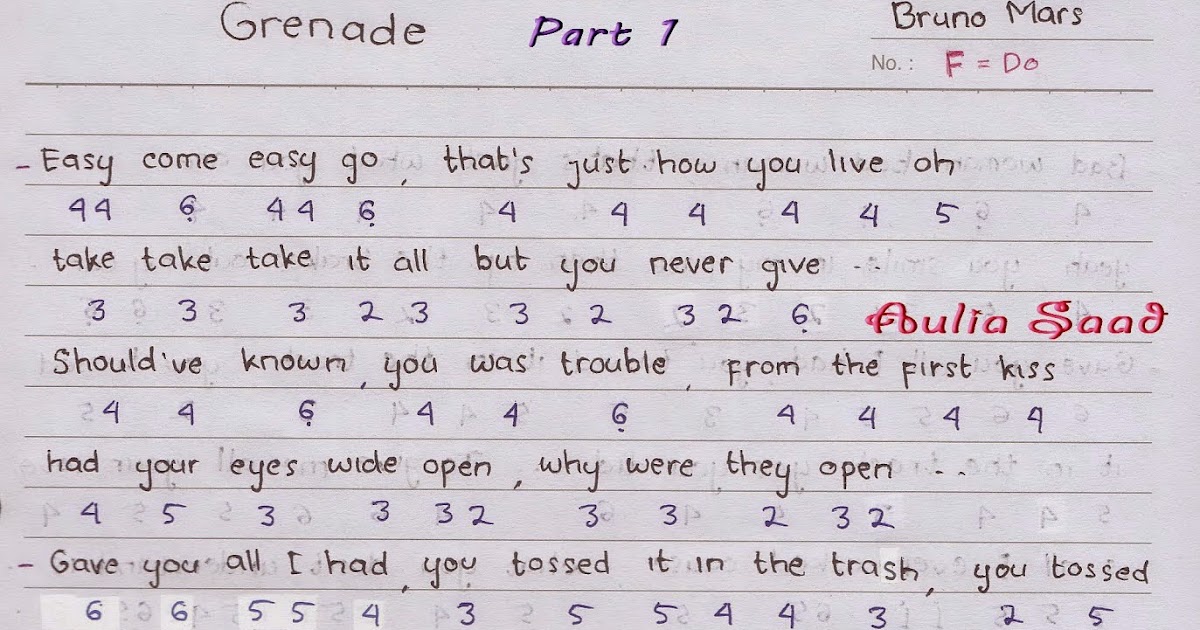 Grenade Part 1 Bruno Mars
No. : F = Do
- Easy come easy go , that's just how you live oh
44 6̣ 44 6̣ 4 4 4 4 4 5
take take take it all but you never give ..
3 3 3 2 3 3 2 3 2 6̣ Aulia Saad
Should've known , you was trouble , from the first kiss
4 4 6̣ 4 4 6̣ 4 4 4 4
had your eyes wide open , why were they open ...
4 5 3 3 3 2 3 3 2 3 2
- Gave you all I had , you tossed it in the trash , you tossed
6 6 5 5 4 3 5 5 4 4 3 2 5